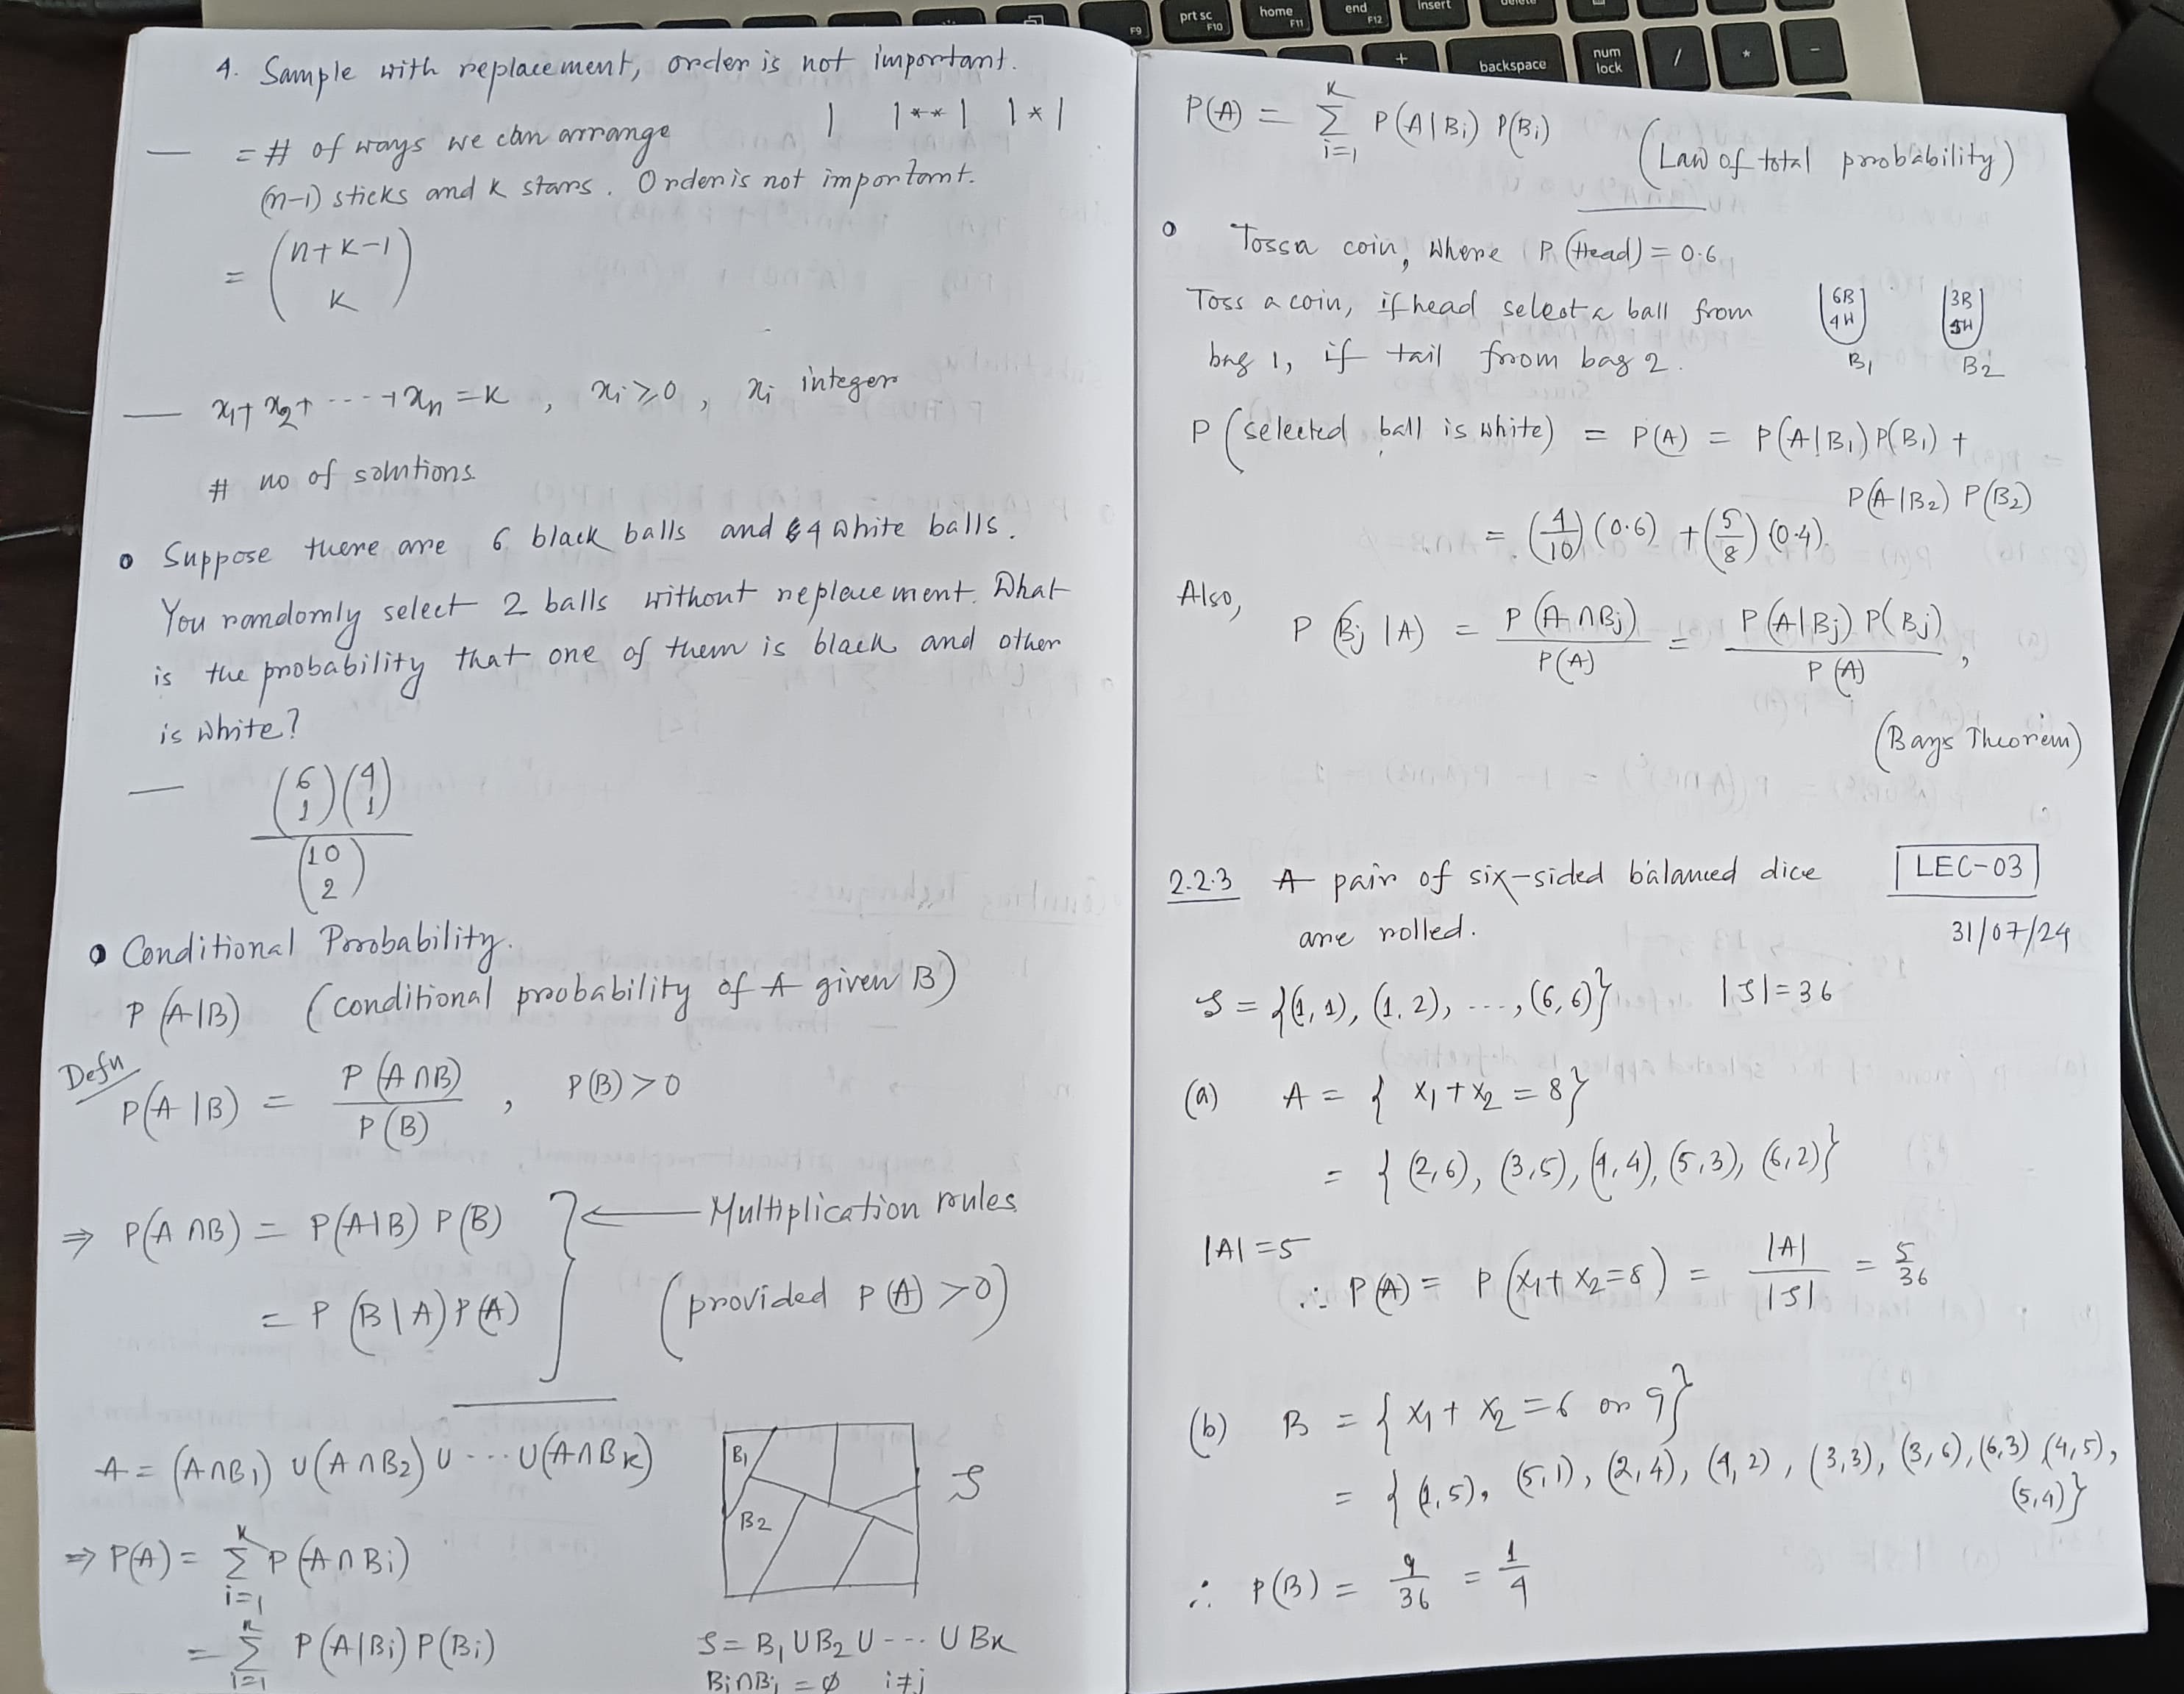 prt sc
F10
home
F11
end
F12
insert
delete
F9
+
backspace
num
lock
/
*
-
4. Sample with replacement, order is not important.
| |**| |*|
= # of ways we can arrange
(n-1) sticks and k stars. Order is not important.
= (n+k-1
k)
x₁+x₂+ --- +xₙ = k , xᵢ ≥ 0 , xᵢ integer
# no of solutions
Suppose there are 6 black balls and 4 white balls.
You randomly select 2 balls without replacement. What
is the probability that one of them is black and other
is white?
(6
1)(4
1)
(10
2)
Conditional Probability.
P(A|B) (conditional probability of A given B)
Defn
P(A|B) = P(A∩B)/P(B) , P(B)>0
⇒ P(A∩B) = P(A|B) P(B) } ← Multiplication rules
= P(B|A) P(A) (provided P(A)>0)
A = (A∩B₁) ∪ (A∩B₂) ∪ --- ∪ (A∩Bk)
B₁
B₂
S
⇒ P(A) = Σᵢ₌₁ᵏ P(A∩Bᵢ)
= Σᵢ₌₁ᵏ P(A|Bᵢ) P(Bᵢ)
S = B₁ ∪ B₂ ∪ --- ∪ Bk
Bᵢ∩Bⱼ = ∅ i≠j
P(A) = Σᵢ₌₁ᵏ P(A|Bᵢ) P(Bᵢ) (Law of total probability)
Toss a coin, where P(Head) = 0.6
Toss a coin, if head select a ball from
bag 1, if tail from bag 2.
6B
4W
B₁
3B
5W
B₂
P(selected ball is white) = P(A) = P(A|B₁) P(B₁) +
P(A|B₂) P(B₂)
= (4/10)(0.6) + (5/8)(0.4).
Also,
P(Bⱼ|A) = P(A∩Bⱼ)/P(A) = P(A|Bⱼ) P(Bⱼ)/P(A) ,
(Bays Theorem)
2.2.3 A pair of six-sided balanced dice
are rolled.
LEC-03
31/07/24
S = {(1,1), (1,2), ---, (6,6)} |S| = 36
(a) A = { x₁+x₂ = 8}
= { (2,6), (3,5), (4,4), (5,3), (6,2)}
|A| = 5
∴ P(A) = P(x₁+x₂=8) = |A|/|S| = 5/36
(b) B = { x₁+x₂ = 6 or 9}
= { (1,5), (5,1), (2,4), (4,2), (3,3), (3,6), (6,3) (4,5),
(5,4)}
∴ P(B) = 9/36 = 1/4